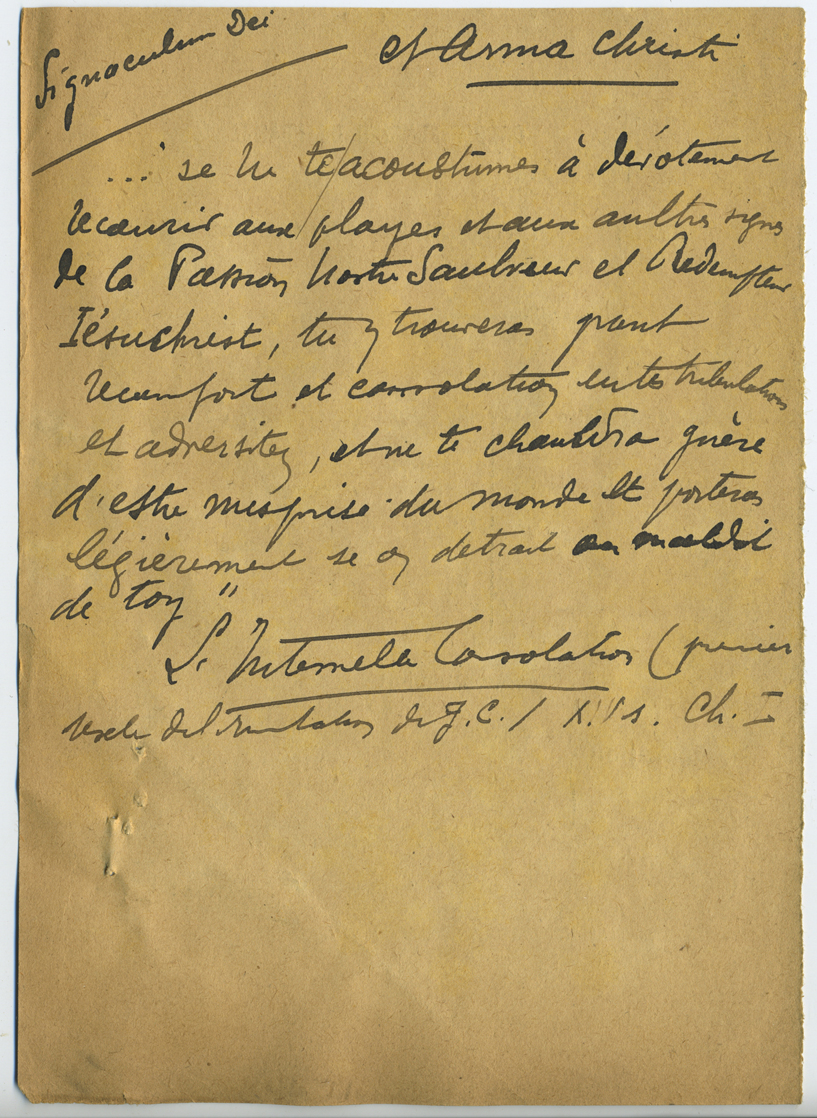 Signaculum Dei
et Arma Christi
..." se tu te/acoustumes à dévotement
recourir aux playes et aux aultres signes
de la Passion Nostre Saulveur et Rédempteur
Iésuchrist, tu y trouveras grant
reconfort et consolation en tes tribulations
et adversitez, et ne te chauldra guère
d'estre mesprisé du monde et porteras
légièrement se on detrait ou mauldit
de toy "
L'Internelle Consolation (premier
de l'Imitation de J.C. / XVe s. Ch. I